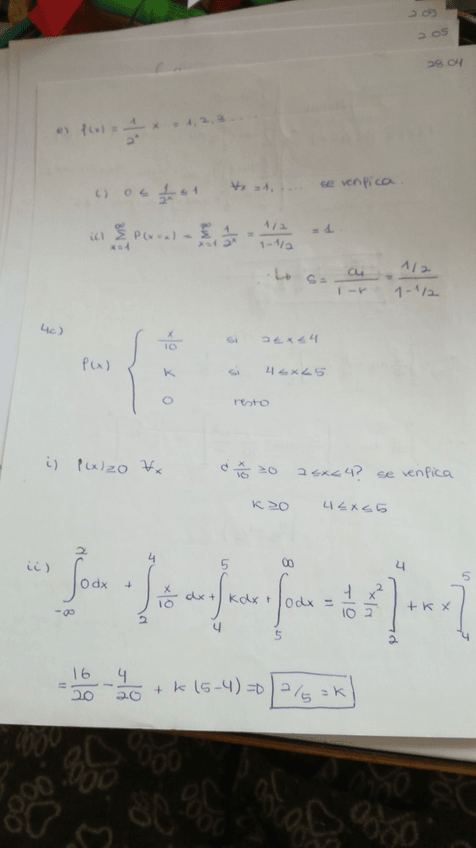 2.09
2.05
28.04
e) f(x) = 1/2^x x = 1, 2, 3 ....
i) 0 ≤ 1/2^x ≤ 1 ∀x = 1, .... se verifica.
ii) ∑_{x=1}^{∞} P(X=x) = ∑_{x=1}^{∞} 1/2^x = (1/2)/(1-1/2) = 1
↳ S = a₁/(1-r) = (1/2)/(1-1/2)
4c)
f(x) { x/10 si 2≤x≤4
k si 4≤x≤5
0 resto
i) f(x) ≥ 0 ∀x ¿ x/10 ≥ 0 2≤x≤4? se verifica
k ≥ 0 4≤x≤5
ii) ∫_{-∞}^{2} 0dx + ∫_{2}^{4} x/10 dx + ∫_{4}^{5} kdx + ∫_{5}^{∞} 0dx = 1/10 x²/2 ]_{2}^{4} + k x ]_{4}^{5}
= 16/20 - 4/20 + k (5-4) ⇒ 2/5 = k